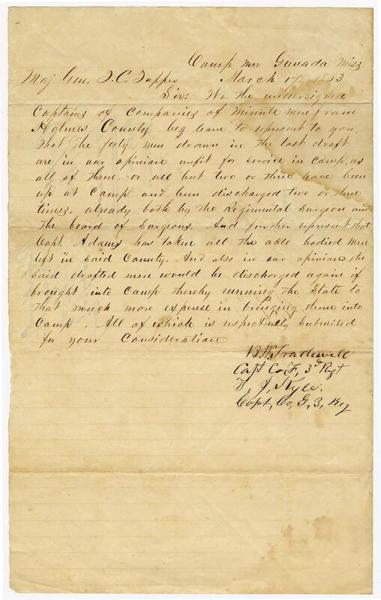 Camp near Grenada Miss
Maj Gen. T. C. Tupper March 17 1863
Sir: We the undersigned
Captains of Companies of Minute men from
Holmes County beg leave to represent to you
That the forty men drawn in the last draft
are in our opinion unfit for service in camp, as
all of them, or all but two or three have been
up at Camp and been discharged two or three
times already both by the Regimental Surgeon and
The board of Surgeons. And further represent that
Capt. Adams has taken all the able bodied men
left in said County. And also in our opinion the
said drafted men would be discharged again if
brought into Camp thereby running the State to
that much more expense in bringing them into
Camp. All of which is respectfully submitted
for your Consideration
Capt Co. F, 3rd Regt
Kyle.
Capt, Co, G, 3, Reg